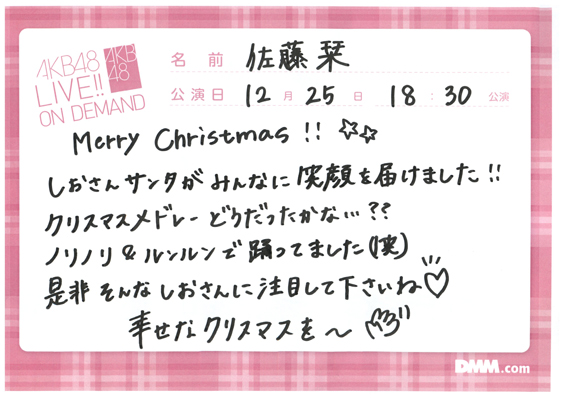 AKB48
LIVE!!
ON DEMAND
AKB
48
名前 佐藤栞
公演日 12月25日 18:30公演
Merry Christmas!! ☆☆
しおさんサンタがみんなに笑顔を届けました!!
クリスマスメドレーどうだったかな…??
ノリノリ&ルンルンで踊ってました(笑)
是非そんなしおさんに注目して下さいね♡
幸せなクリスマスを〜
DMM.com